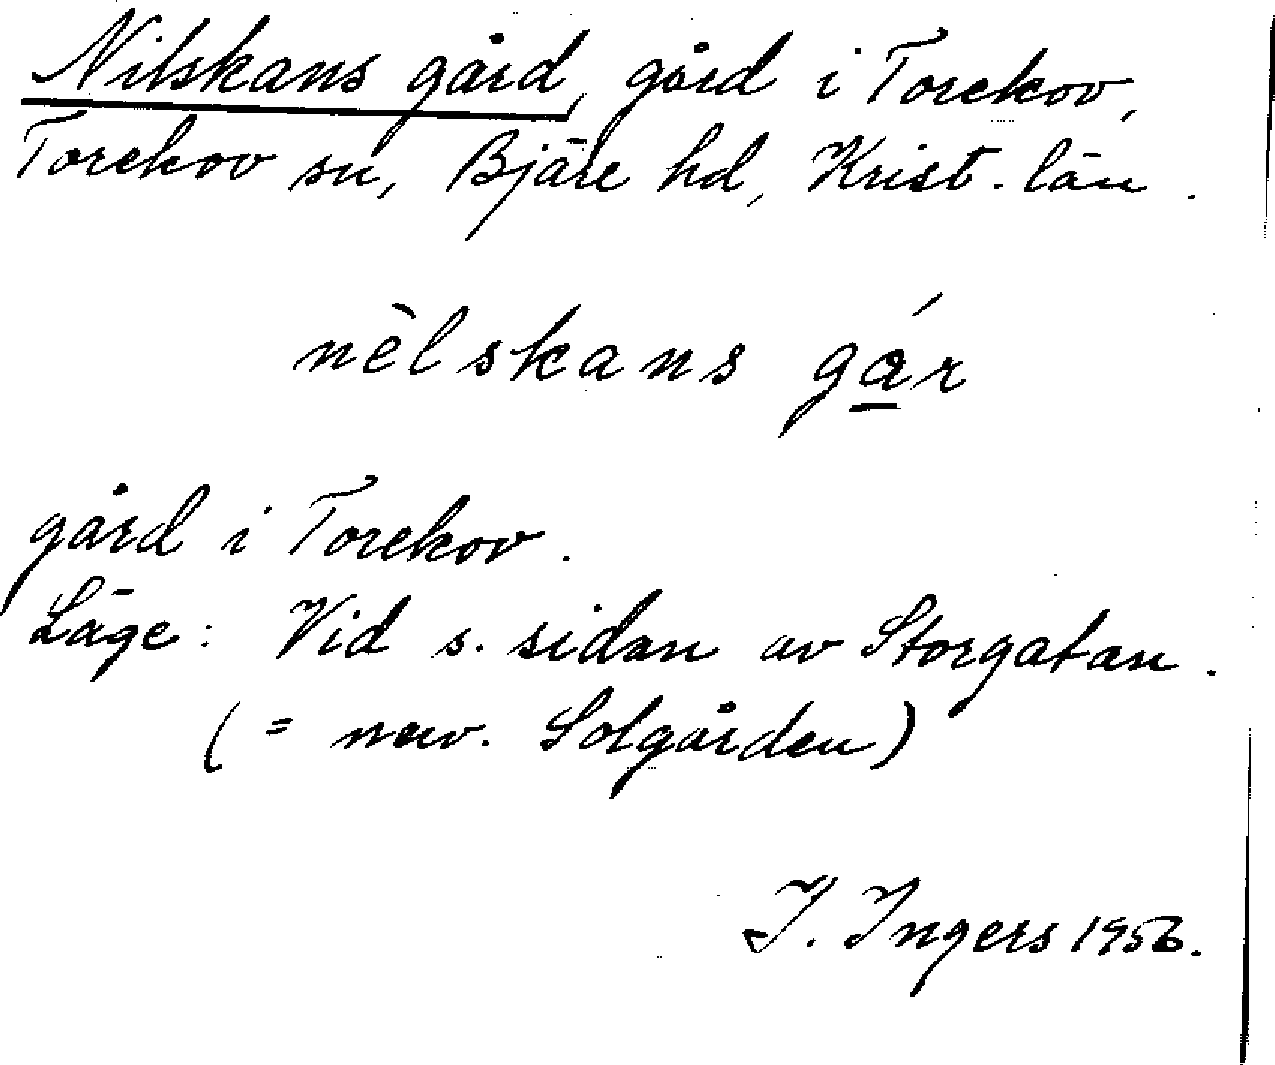 Nilskans gård, gård i Torekov,
Torekov sn, Bjäre hd, Krist. län.
nèlskans gá̱r
gård i Torekov.
Läge: Vid s. sidan av Storgatan.
(= nuv. Solgården)
I. Ingers 1956.